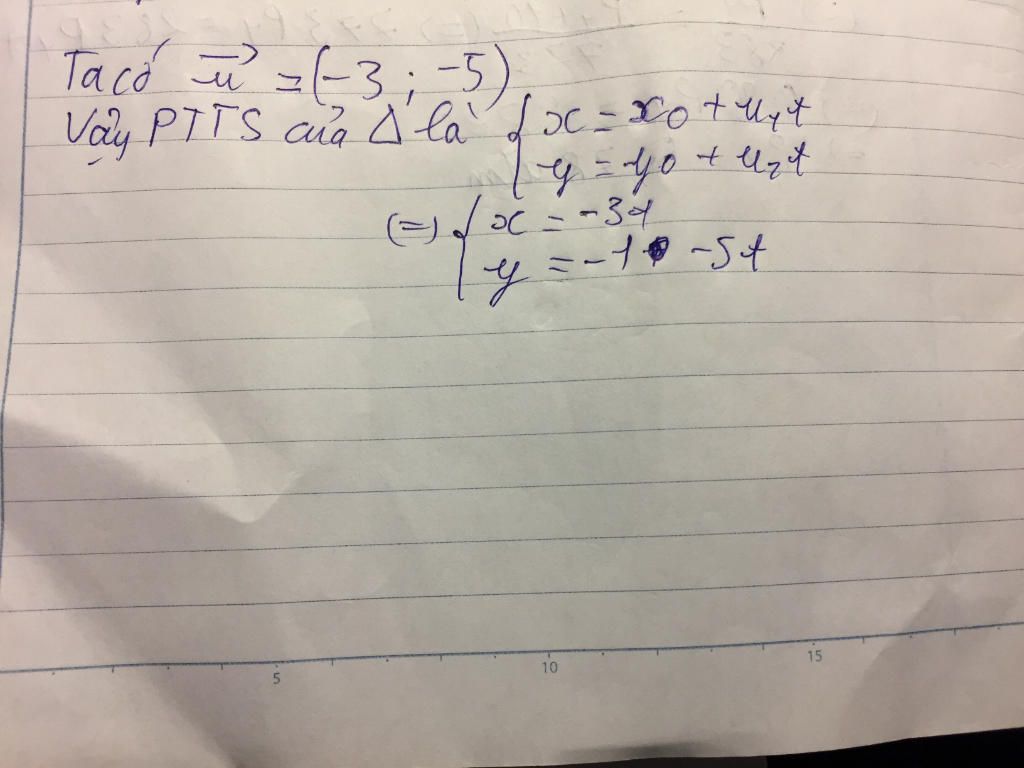 Ta có u⃗ = (-3 ; -5)
Vậy PTTS của Δ là { x = x0 + u1t
y = y0 + u2t
(=) { x = -3t
y = -1 -5t
5 10 15